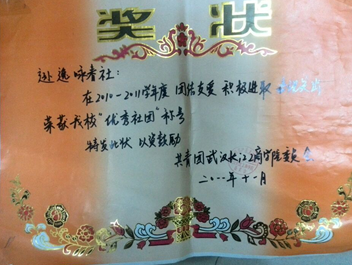 奖状
逊逸咏春社：
在2010-2011学年度 团结友爱 积极进取
荣获我校"优秀社团"称号
特发此状 以资鼓励
共青团武汉长江工商学院委员会
二〇一一年十一月